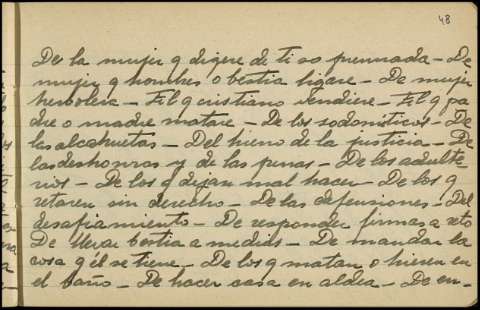 48
De la mujer q digere de ti so prennada — De
mujer q hombres o bestia ligare — De mujer
herbolera — El q cristiano vendiere — El q pa
dre o madre matare — De los sodomíticos — De
las alcahuetas — Del hierro de la justicia — De
las deshonras y de las penas — De los adulte
rios — De los q dejan mal hacer — De los q
retaren sin derecho — De las defensiones — Del
desafiamiento — De responder firmas a reto
De llevar bestia a medids — De mandar la
cosa q él se tiene — De los q matan o hieren en
el baño — De hacer casa en aldea — De en-